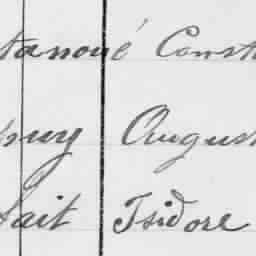 tanoué Const
puy August
fait Isidore